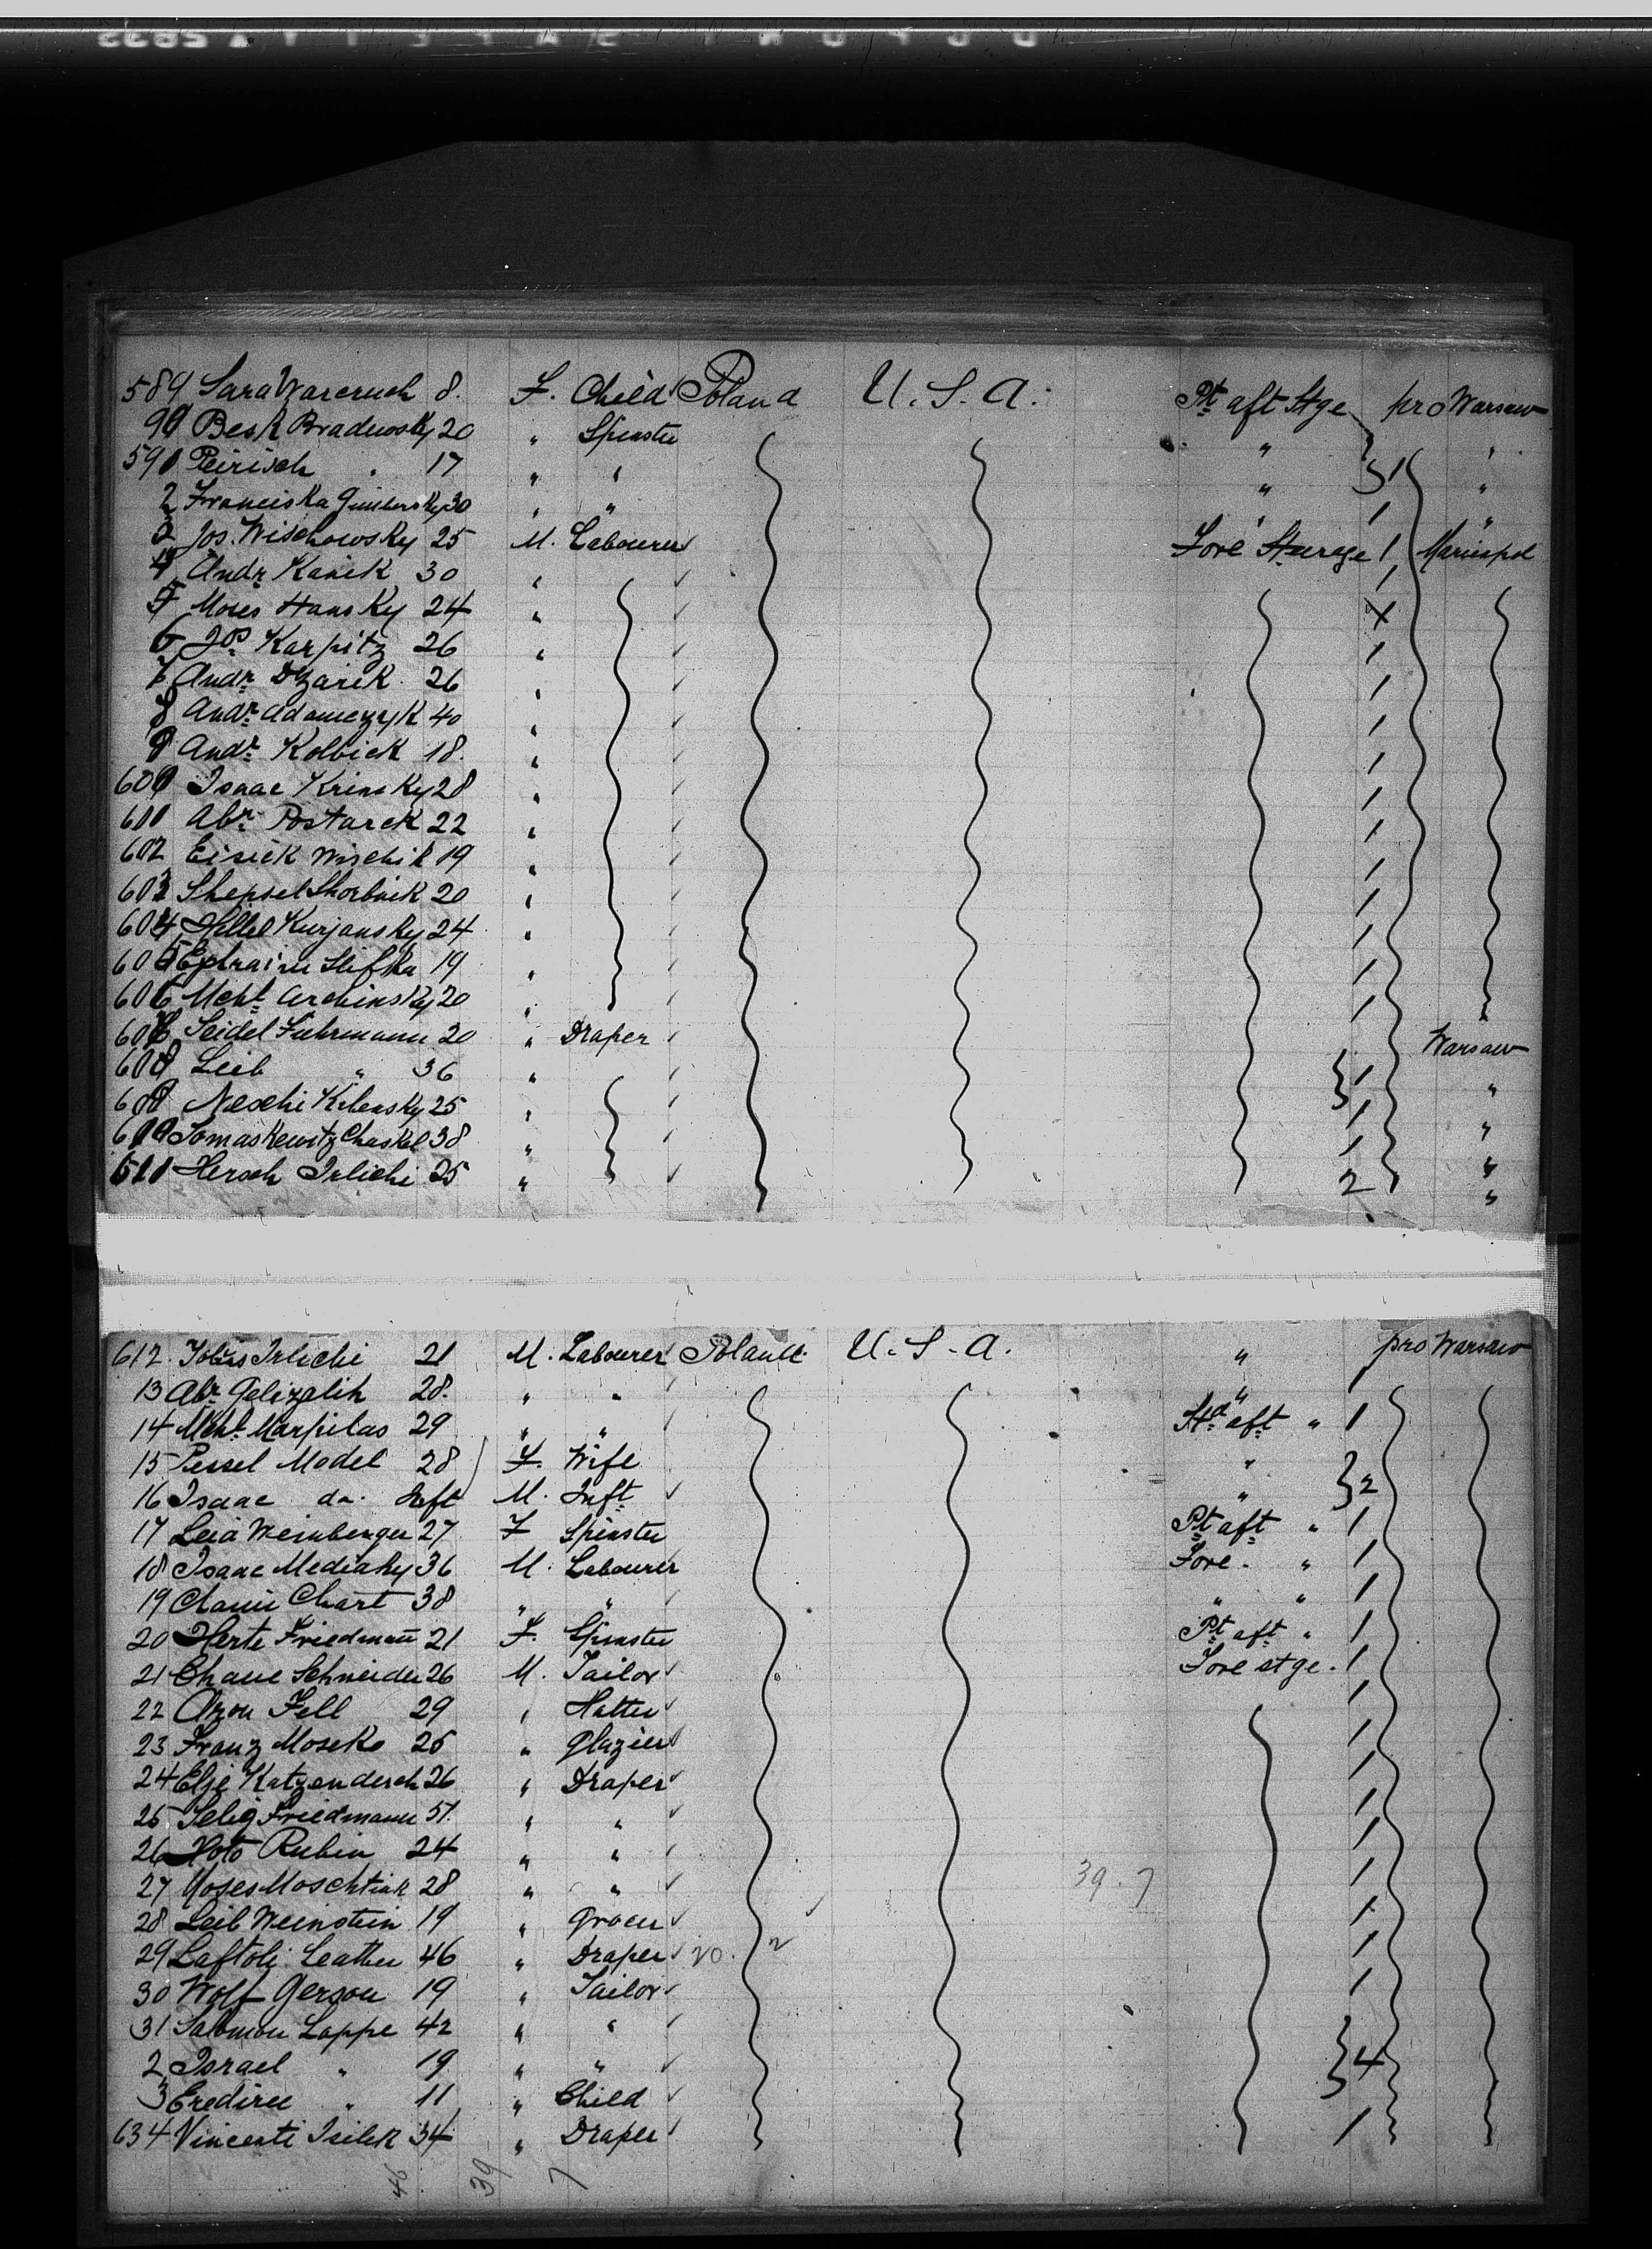 589 Sara Warcruch 8. F. Child Poland U.S.A. Pt aft Stge pro Warsaw
90 Besk Bradewosky 20 " Spinster " "
591 Peirisch " 17 " " " 1 "
2 Franciska 30 " " 1 "
3 Jos. Wischowsky 25 M. Labourer Fore Steerage 1 Mariupol
4 Andr. Kanek 30 " 1
5 Moses Hansky 24 " X
6 Jos Karpitz 26 " 1
7 Andr. Dzarik 26 " 1
8 Andr. Adamczyk 40 " 1
9 Andr. Kolbick 18. " 1
600 Isaac Krinsky 28 " 1
601 Abr. Postarek 22 " 1
602 Eisick Wischik 19 " 1
603 Shepsel Shorbnik 20 " 1
604 Hillel Kurjansky 24 " 1
605 Ephraim Slifka 19 " 1
606 Mchl Archinsky 20 " 1
Seidel Fuhrmann 20 " Draper Warsaw
608 Leib " 36 " 1 "
Neschi Kilensky 25 " 1 "
610 Tomaskewitz Chaskel 38 " 1 "
611 Hersch Irlichi 25 " 2 "
612. Irlichi 21 M. Labourer Poland U.S.A. " pro Warsaw
13 Abr. Gelizalih 28. " " " 1
14 Mchl. Marpilas 29 " " Std aft " 1
15 Pessel Model 28 F. Wife "
16 Isaac do. Inft M. Inft " 2
17 Leia Weinberger 27 F Spinster Pt aft " 1
18 Isaac Mediaky 36 M. Labourer Fore. " 1
19 Chaim Chart 38 " " " " 1
20 Herte Friedmann 21 F. Spinster Pt aft " 1
21 Chane Schneider 26 M. Tailor Fore stge. 1
22 Aron Fell 29 " Hatter 1
23 Franz Moseko 26 " Glazier 1
24 Elje Katzenderch 26 " Draper 1
25 Selig Friedmann 51. " " 1
26 Hoto Rubin 24 " " 1
27 Moses Moschtiak 28 " " 39.7 1
28 Leib Weinstein 19 " Grocer 1
29 Laftoli Leather 46 " Draper 20. 1
30 Wolf Gerson 19 " Tailor 1
31 Salomon Lappe 42 " "
2 Israel " 19 " " 4
3 Eredire " 11 " Child
634 Vincenti Isilik 34 " Draper 1
46 39 7